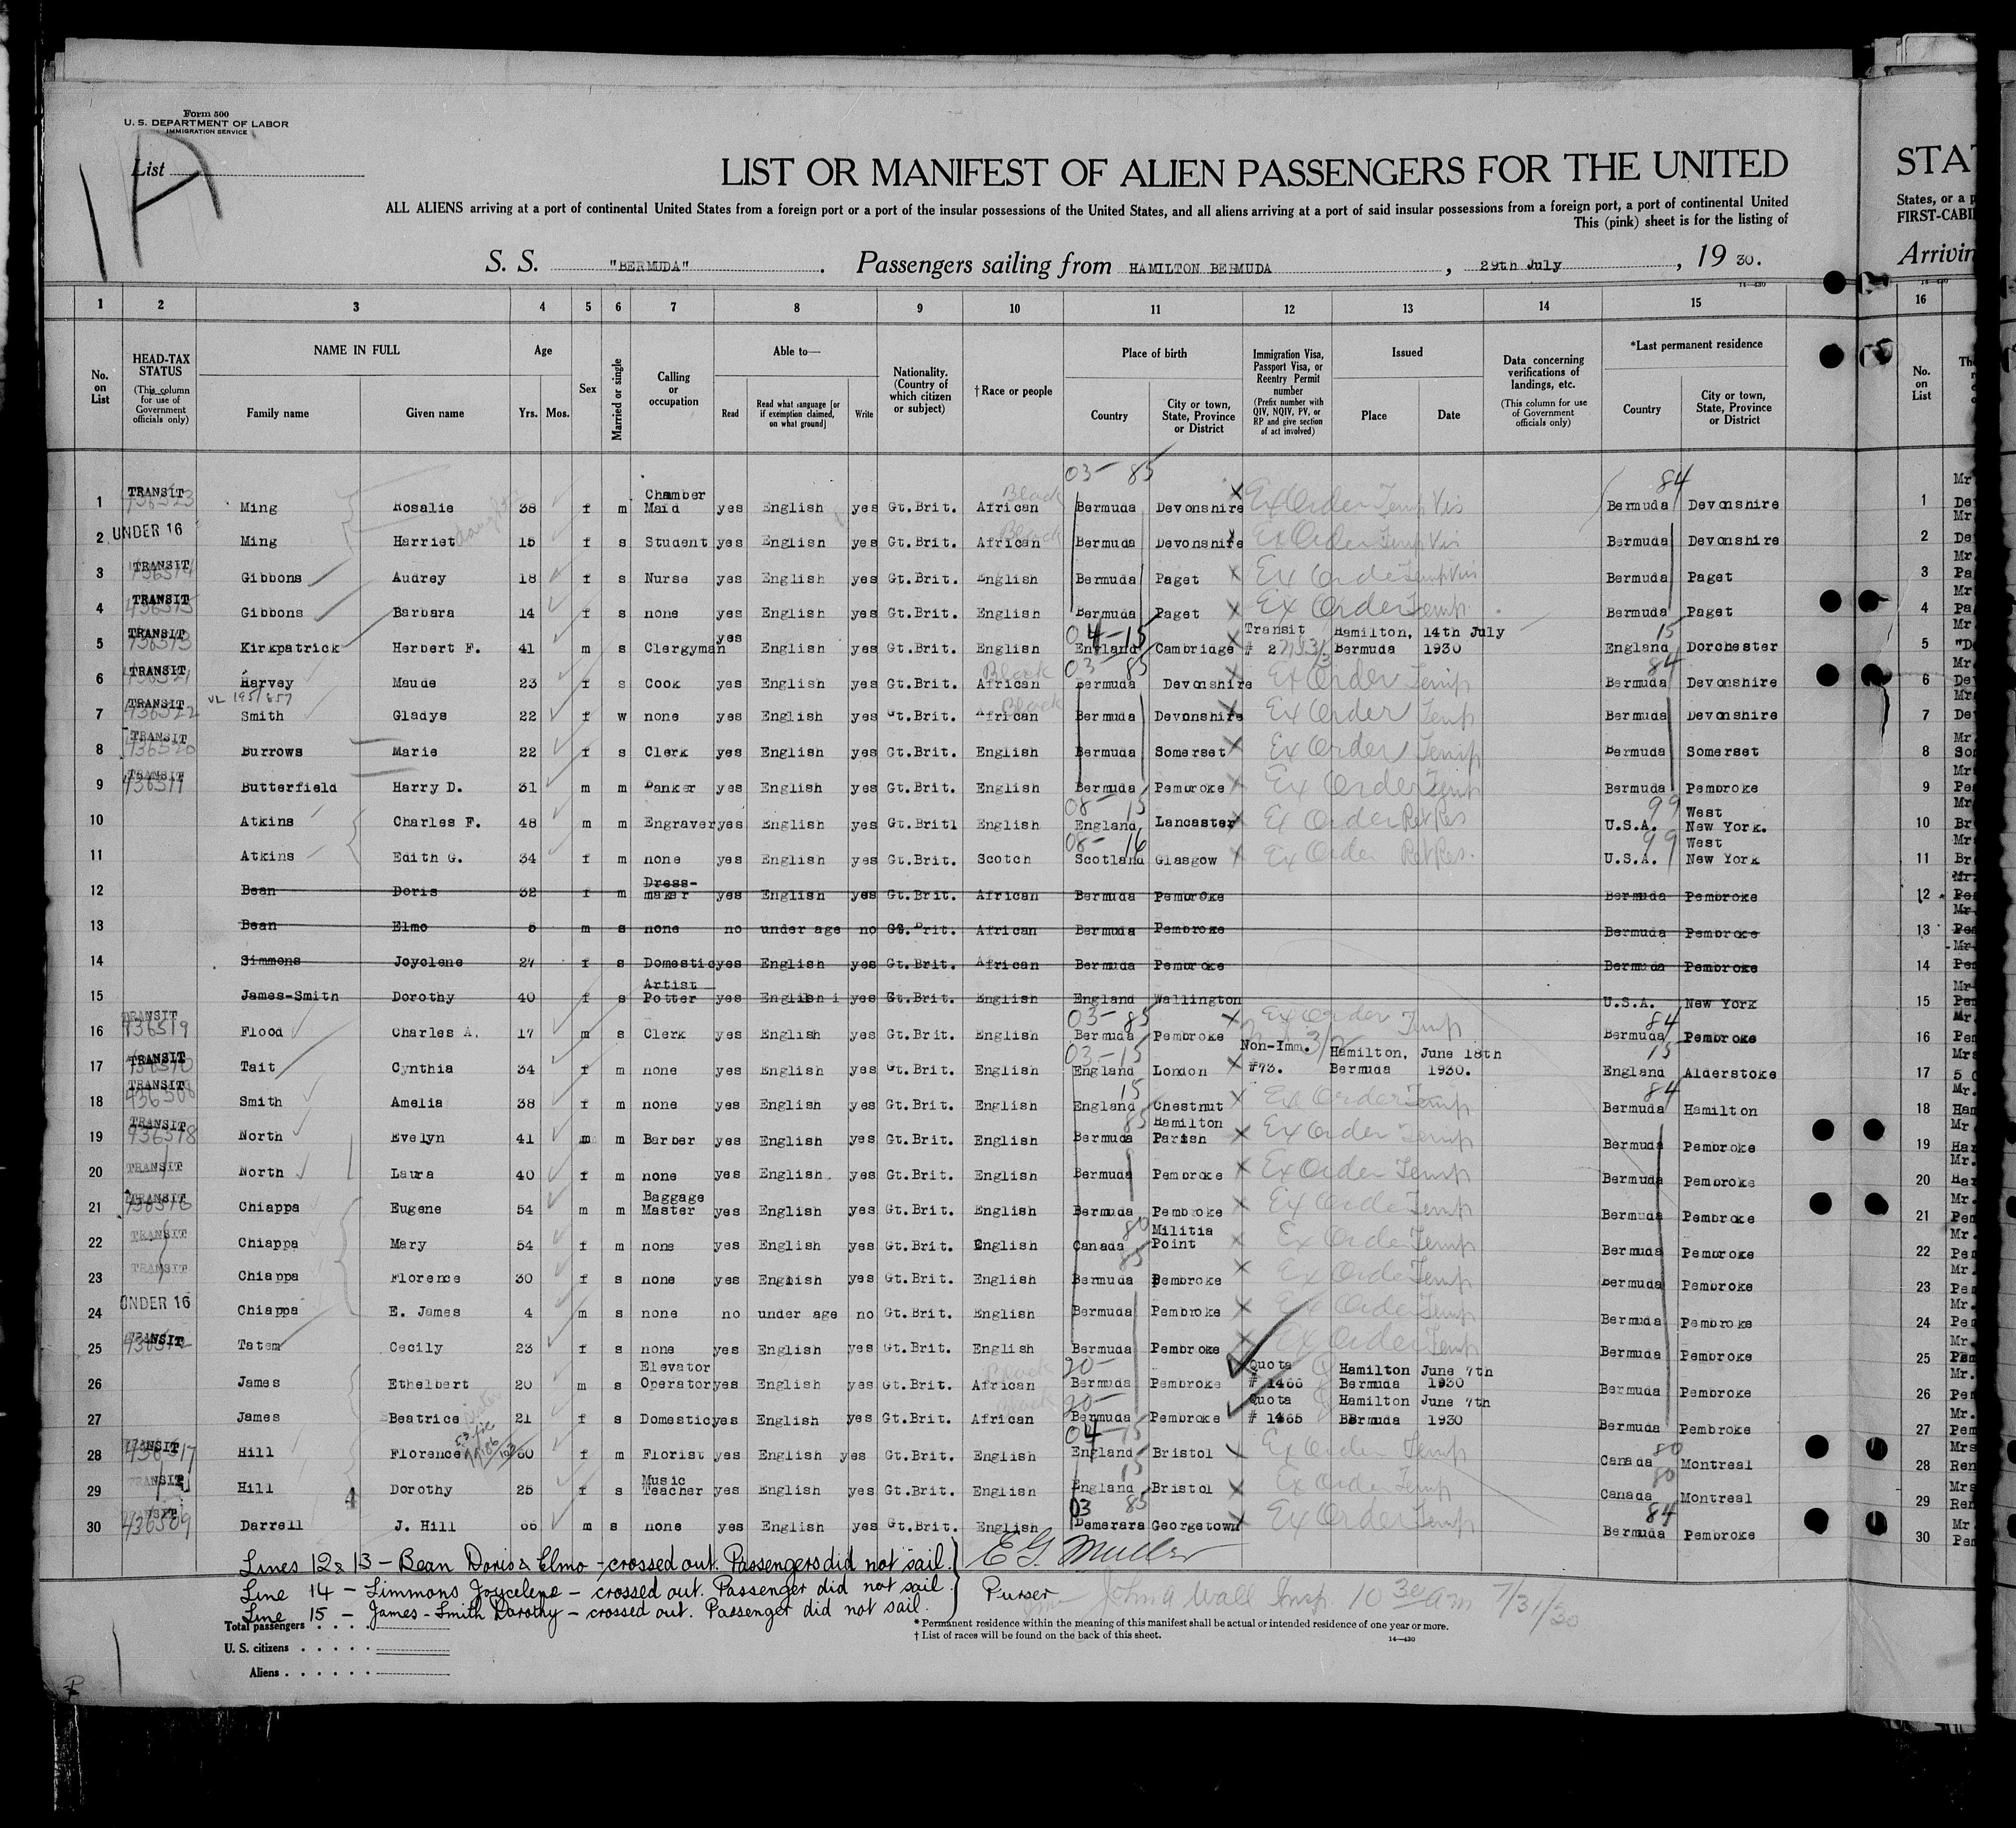 Form 500
U. S. DEPARTMENT OF LABOR
IMMIGRATION SERVICE
List
1A
LIST OR MANIFEST OF ALIEN PASSENGERS FOR THE UNITED
STA
ALL ALIENS arriving at a port of continental United States from a foreign port or a port of the insular possessions of the United States, and all aliens arriving at a port of said insular possessions from a foreign port, a port of continental United
States, or a p
This (pink) sheet is for the listing of
FIRST-CABI
S. S. "BERMUDA". Passengers sailing from HAMILTON BERMUDA, 29th July, 19 30.
Arrivin
14—430
1 2 3 4 5 6 7 8 9 10 11 12 13 14 15 16
No. on List
HEAD-TAX STATUS (This column for use of Government officials only)
NAME IN FULL Family name Given name
Age Yrs. Mos.
Sex
Married or single
Calling or occupation
Able to— Read Read what language [or if exemption claimed, on what ground] Write
Nationality. (Country of which citizen or subject)
† Race or people
Place of birth Country City or town, State, Province or District
Immigration Visa, Passport Visa, or Reentry Permit number (Prefix number with QIV, NQIV, PV, or RP and give section of act involved)
Issued Place Date
Data concerning verifications of landings, etc. (This column for use of Government officials only)
*Last permanent residence Country City or town, State, Province or District
No. on List
03- 85 84
1 TRANSIT Ming Rosalie 38 f m Chamber Maid yes English yes Gt.Brit. African Black Bermuda Devonshire X Ex Order Temp Vis Bermuda Devonshire 1
2 UNDER 16 Ming Harriet daughter 15 f s Student yes English yes Gt.Brit. African Black Bermuda Devonshire X Ex Order Temp Vis Bermuda Devonshire 2
3 TRANSIT 436514 Gibbons Audrey 18 f s Nurse yes English yes Gt.Brit. English Bermuda Paget X Ex Order Temp Vis Bermuda Paget 3
4 TRANSIT 436515 Gibbons Barbara 14 f s none yes English yes Gt.Brit. English Bermuda Paget X Ex Order Temp Bermuda Paget 4
5 TRANSIT 436513 Kirkpatrick Herbert F. 41 m s Clergyman yes English yes Gt.Brit. English 04-15 England Cambridge X Transit # Hamilton, Bermuda 14th July 1930 15 England Dorchester 5
6 TRANSIT Harvey Maude 23 f s Cook yes English yes Gt.Brit. African Black 03- 85 Bermuda Devonshire Ex Order Temp 84 Bermuda Devonshire 6
7 TRANSIT 436522 Smith Gladys 22 f w none yes English yes Gt.Brit. African Black Bermuda Devonshire X Ex Order Temp Bermuda Devonshire 7
8 TRANSIT 436520 Burrows Marie 22 f s Clerk yes English yes Gt.Brit. English Bermuda Somerset X Ex Order Temp Bermuda Somerset 8
9 TRANSIT 436511 Butterfield Harry D. 31 m m Banker yes English yes Gt.Brit. English Bermuda Pembroke X Ex Order Temp Bermuda Pembroke 9
10 Atkins Charles F. 48 m m Engraver yes English yes Gt.Britl English 08- 15 England Lancaster X Ex Order Ret Res 99 U.S.A. West New York. 10
11 Atkins Edith G. 34 f m none yes English yes Gt.Brit. Scotch 08- 16 Scotland Glasgow X Ex Order Ret Res. 99 U.S.A. West New York 11
12 Bean Doris 32 f m Dress-maker yes English yes Gt.Brit. African Bermuda Pembroke Bermuda Pembroke 12
13 Bean Elmo m s none no under age no Gt.Brit. African Bermuda Pembroke Bermuda Pembroke 13
14 Simmons Joyclene 27 f s Domestic yes English yes Gt.Brit. African Bermuda Pembroke Bermuda Pembroke 14
15 James-Smith Dorothy 40 f s Artist Potter yes English yes Gt.Brit. English England Wallington U.S.A. New York 15
16 TRANSIT 436519 Flood Charles A. 17 m s Clerk yes English yes Gt.Brit. English 03- 85 Bermuda Pembroke X Ex Order Temp 84 Bermuda Pembroke 16
17 TRANSIT Tait Cynthia 34 f m none yes English yes Gt.Brit. English 03-15 England London X Non-Imm. #73. Hamilton, Bermuda June 18th 1930. 15 England Alderstoke 17
18 TRANSIT 436508 Smith Amelia 38 f m none yes English yes Gt.Brit. English 15 England Chestnut X Ex Order Temp 84 Bermuda Hamilton 18
19 TRANSIT 436518 North Evelyn 41 m m Barber yes English yes Gt.Brit. English 85 Bermuda Hamilton Parish X Ex Order Temp Bermuda Pembroke 19
20 TRANSIT North Laura 40 f m none yes English yes Gt.Brit. English Bermuda Pembroke X Ex Order Temp Bermuda Pembroke 20
21 TRANSIT 436516 Chiappa Eugene 54 m m Baggage Master yes English yes Gt.Brit. English Bermuda Pembroke X Ex Order Temp Bermuda Pembroke 21
22 TRANSIT Chiappa Mary 54 f m none yes English yes Gt.Brit. English 80 Canada Militia Point X Ex Order Temp Bermuda Pembroke 22
23 TRANSIT Chiappa Florence 30 f s none yes English yes Gt.Brit. English 85 Bermuda Pembroke X Ex Order Temp Bermuda Pembroke 23
24 UNDER 16 Chiappa E. James 4 m s none no under age no Gt.Brit. English Bermuda Pembroke X Ex Order Temp Bermuda Pembroke 24
25 TRANSIT 436512 Tatem Cecily 23 f s none yes English yes Gt.Brit. English Bermuda Pembroke X Ex Order Temp Bermuda Pembroke 25
26 James Ethelbert 20 m s Elevator Operator yes English yes Gt.Brit. African Black 20- Bermuda Pembroke Quota # 1466 Hamilton Bermuda June 7th 1930 Bermuda Pembroke 26
27 James Beatrice 21 f s Domestic yes English yes Gt.Brit. African Black 20- Bermuda Pembroke Quota # 1465 Hamilton Bermuda June 7th 1930 Bermuda Pembroke 27
28 TRANSIT 436517 Hill Florence 50 f m Florist yes English yes Gt.Brit. English 04 15 England Bristol X Ex Order Temp 80 Canada Montreal 28
29 TRANSIT Hill Dorothy 25 f s Music Teacher yes English yes Gt.Brit. English 15 England Bristol X Ex Order Temp 80 Canada Montreal 29
30 TRANSIT 436509 Darrell J. Hill 66 m s none yes English yes Gt.Brit. English 03 85 Demerara Georgetown X Ex Order Temp 84 Bermuda Pembroke 30
Lines 12 & 13 – Bean Doris & Elmo – crossed out. Passengers did not sail. E G Muller
Line 14 – Simmons Joycelene – crossed out. Passenger did not sail Purser
Line 15 – James-Smith Dorothy – crossed out. Passenger did not sail.
John A Wall Insp. 10 30 am 7/31/30
Total passengers . . . .
U. S. citizens . . . . .
Aliens . . . . . .
* Permanent residence within the meaning of this manifest shall be actual or intended residence of one year or more.
† List of races will be found on the back of this sheet.
14—430